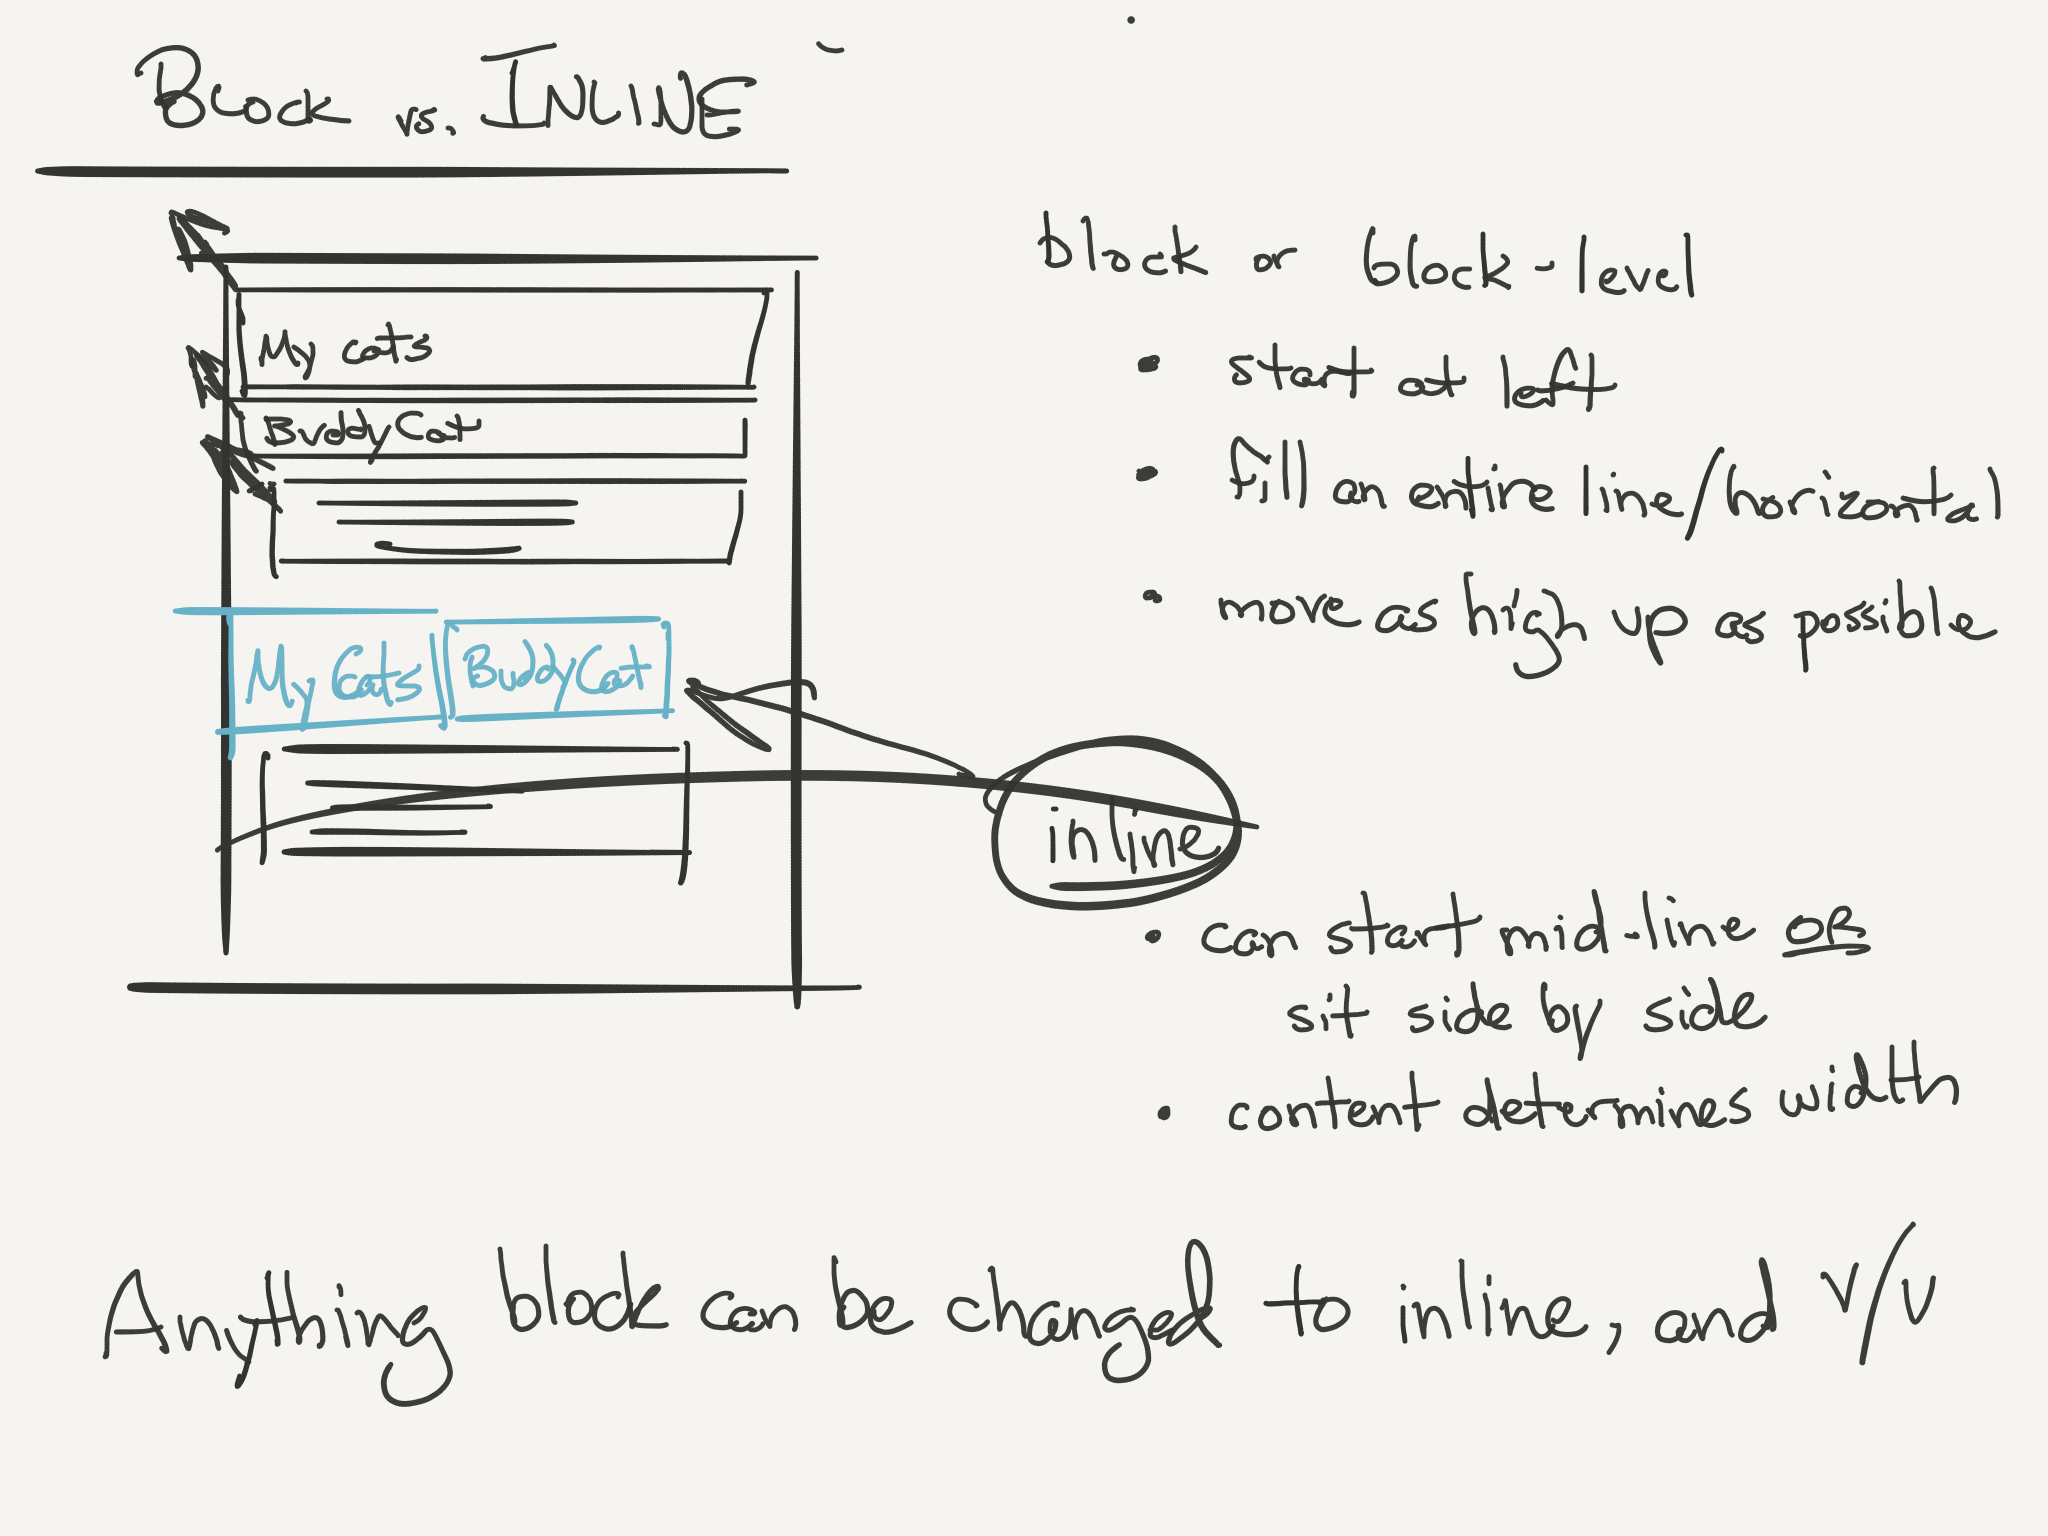 Block vs. INLINE
My cats
BuddyCat
My Cats
BuddyCat
block or block-level
• start at left
• fill an entire line/horizontal
• move as high up as possible
inline
• can start mid-line OR
sit side by side
• content determines width
Anything block can be changed to inline, and v/v